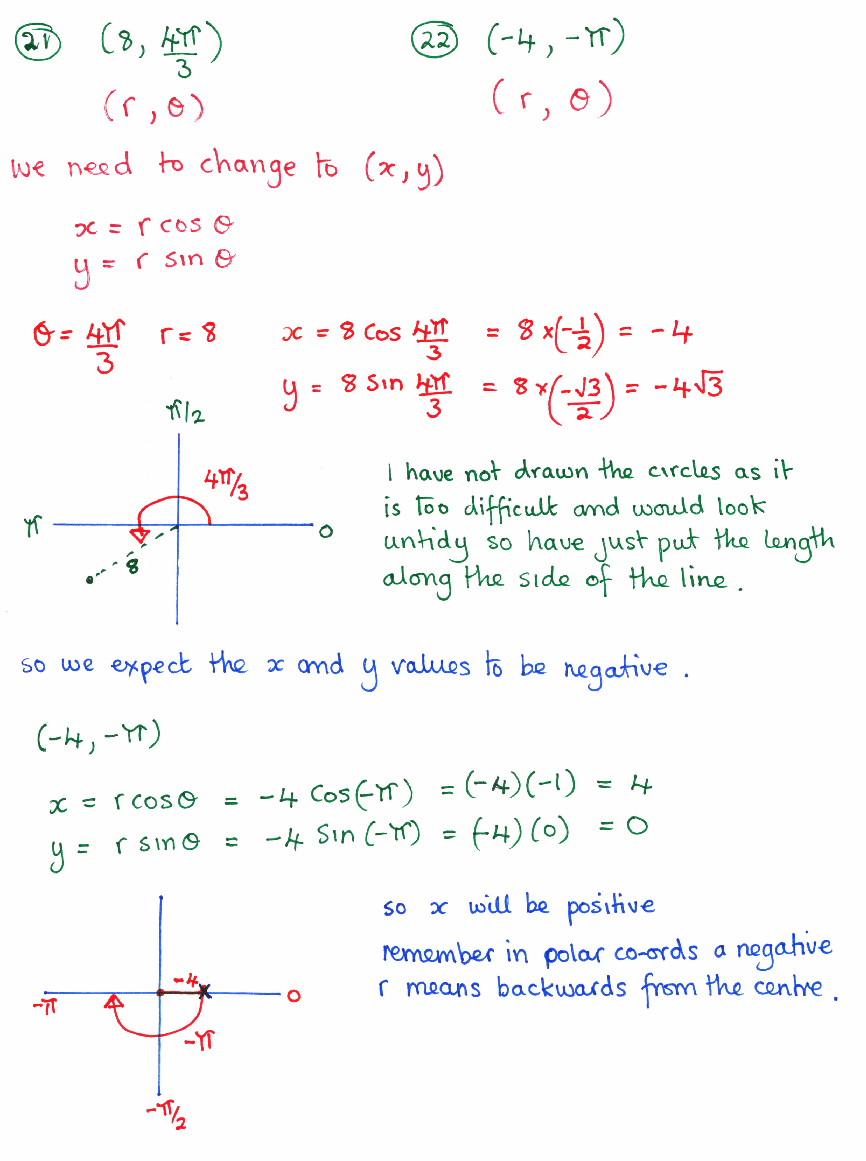 21 (8, 4π/3) 22 (-4, -π)
(r, θ) (r, θ)
we need to change to (x, y)
x = r cos θ
y = r sin θ
θ = 4π/3 r = 8 x = 8 cos 4π/3 = 8 × (-1/2) = -4
y = 8 sin 4π/3 = 8 × (-√3/2) = -4√3
π/2
4π/3
π
0
8
I have not drawn the circles as it
is too difficult and would look
untidy so have just put the length
along the side of the line.
so we expect the x and y values to be negative.
(-4, -π)
x = r cos θ = -4 Cos(-π) = (-4)(-1) = 4
y = r sin θ = -4 Sin (-π) = (-4)(0) = 0
-4
-π
0
-π
-π/2
so x will be positive
remember in polar co-ords a negative
r means backwards from the centre.